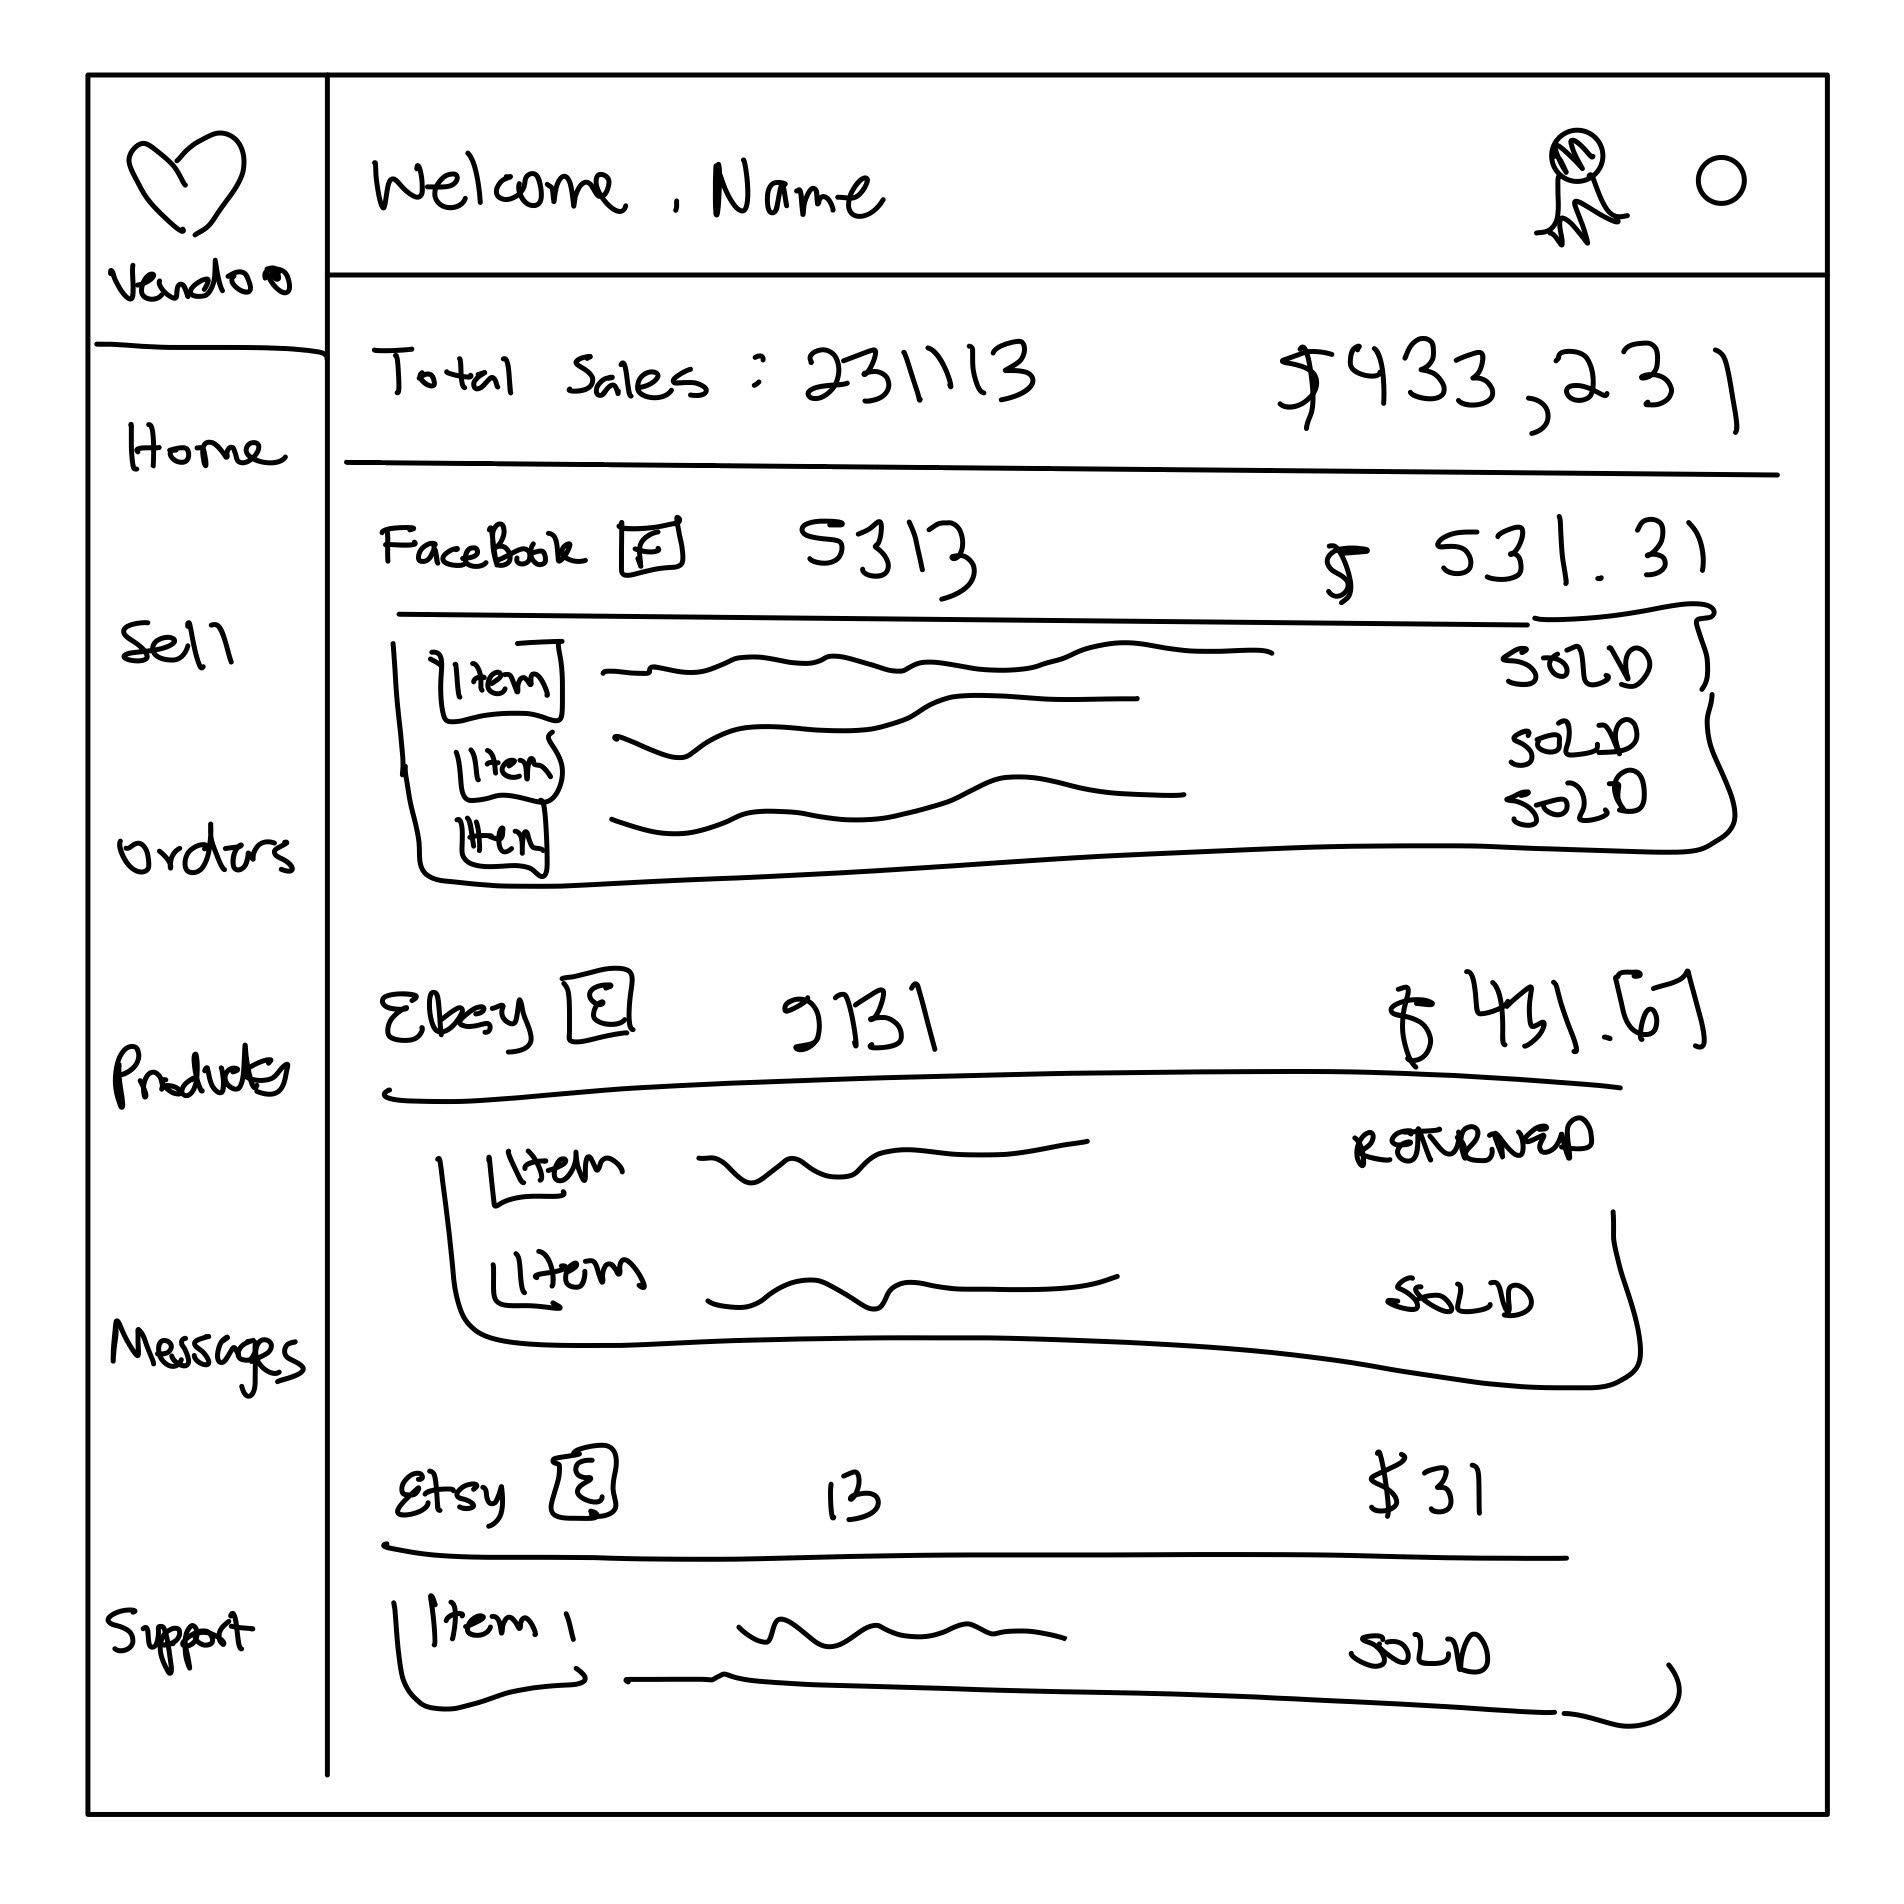 Vendoo
Home
Sell
Orders
Products
Messages
Support
Welcome, Name
Total Sales: 231113 $433,231
FaceBook f 5313 $ 531.31
Item SOLD
Item SOLD
Item SOLD
Ebay E 9131 $ 431.67
Item RETURNED
Item SOLD
Etsy E 13 $31
Item 1 SOLD